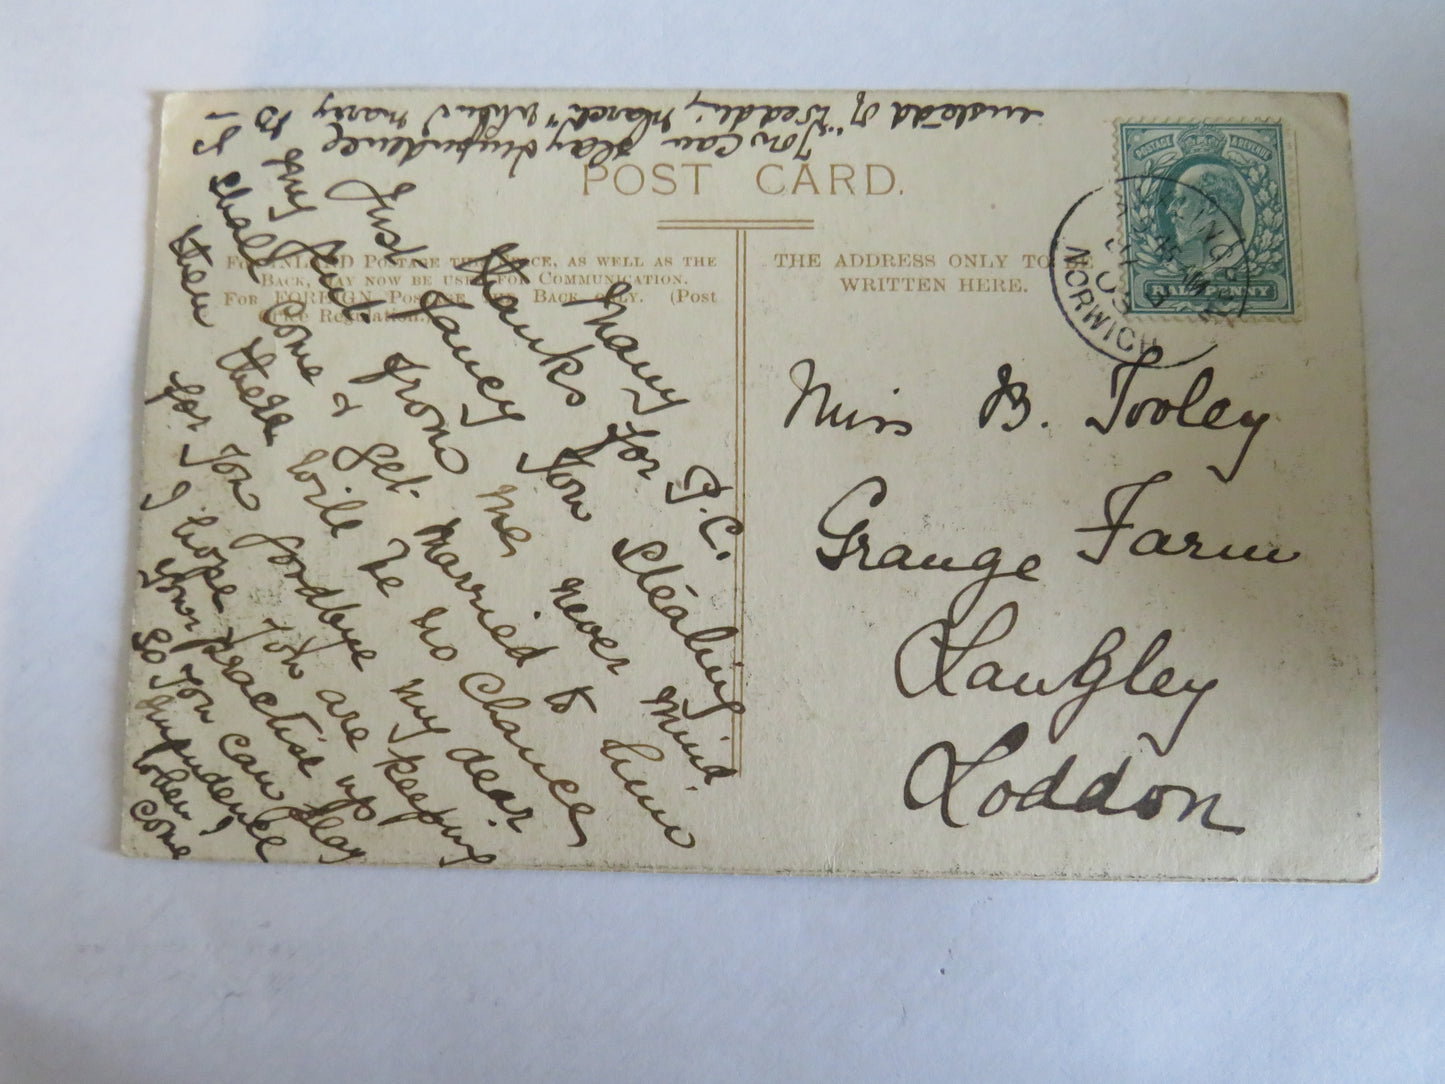 POST CARD.
FOR INLAND POSTAGE THIS SPACE, AS WELL AS THE
BACK, MAY NOW BE USED FOR COMMUNICATION.
FOR FOREIGN POSTAGE THE BACK ONLY. (POST
OFFICE REGULATION.)
THE ADDRESS ONLY TO BE
WRITTEN HERE.
POSTAGE & REVENUE
HALFPENNY
NORWICH
Miss B. Tooley
Grange Farm
Langley
Loddon
Many
thanks for P.C.
Just fancy you stealing
my from me never mind
I shall come & get married to him
then there will be no chance
for you goodbye my dear
I hope you are keeping
your practise up
so you can play
Impudence
when I
come
You can play Impudence
instead of "Wedding March" when marry